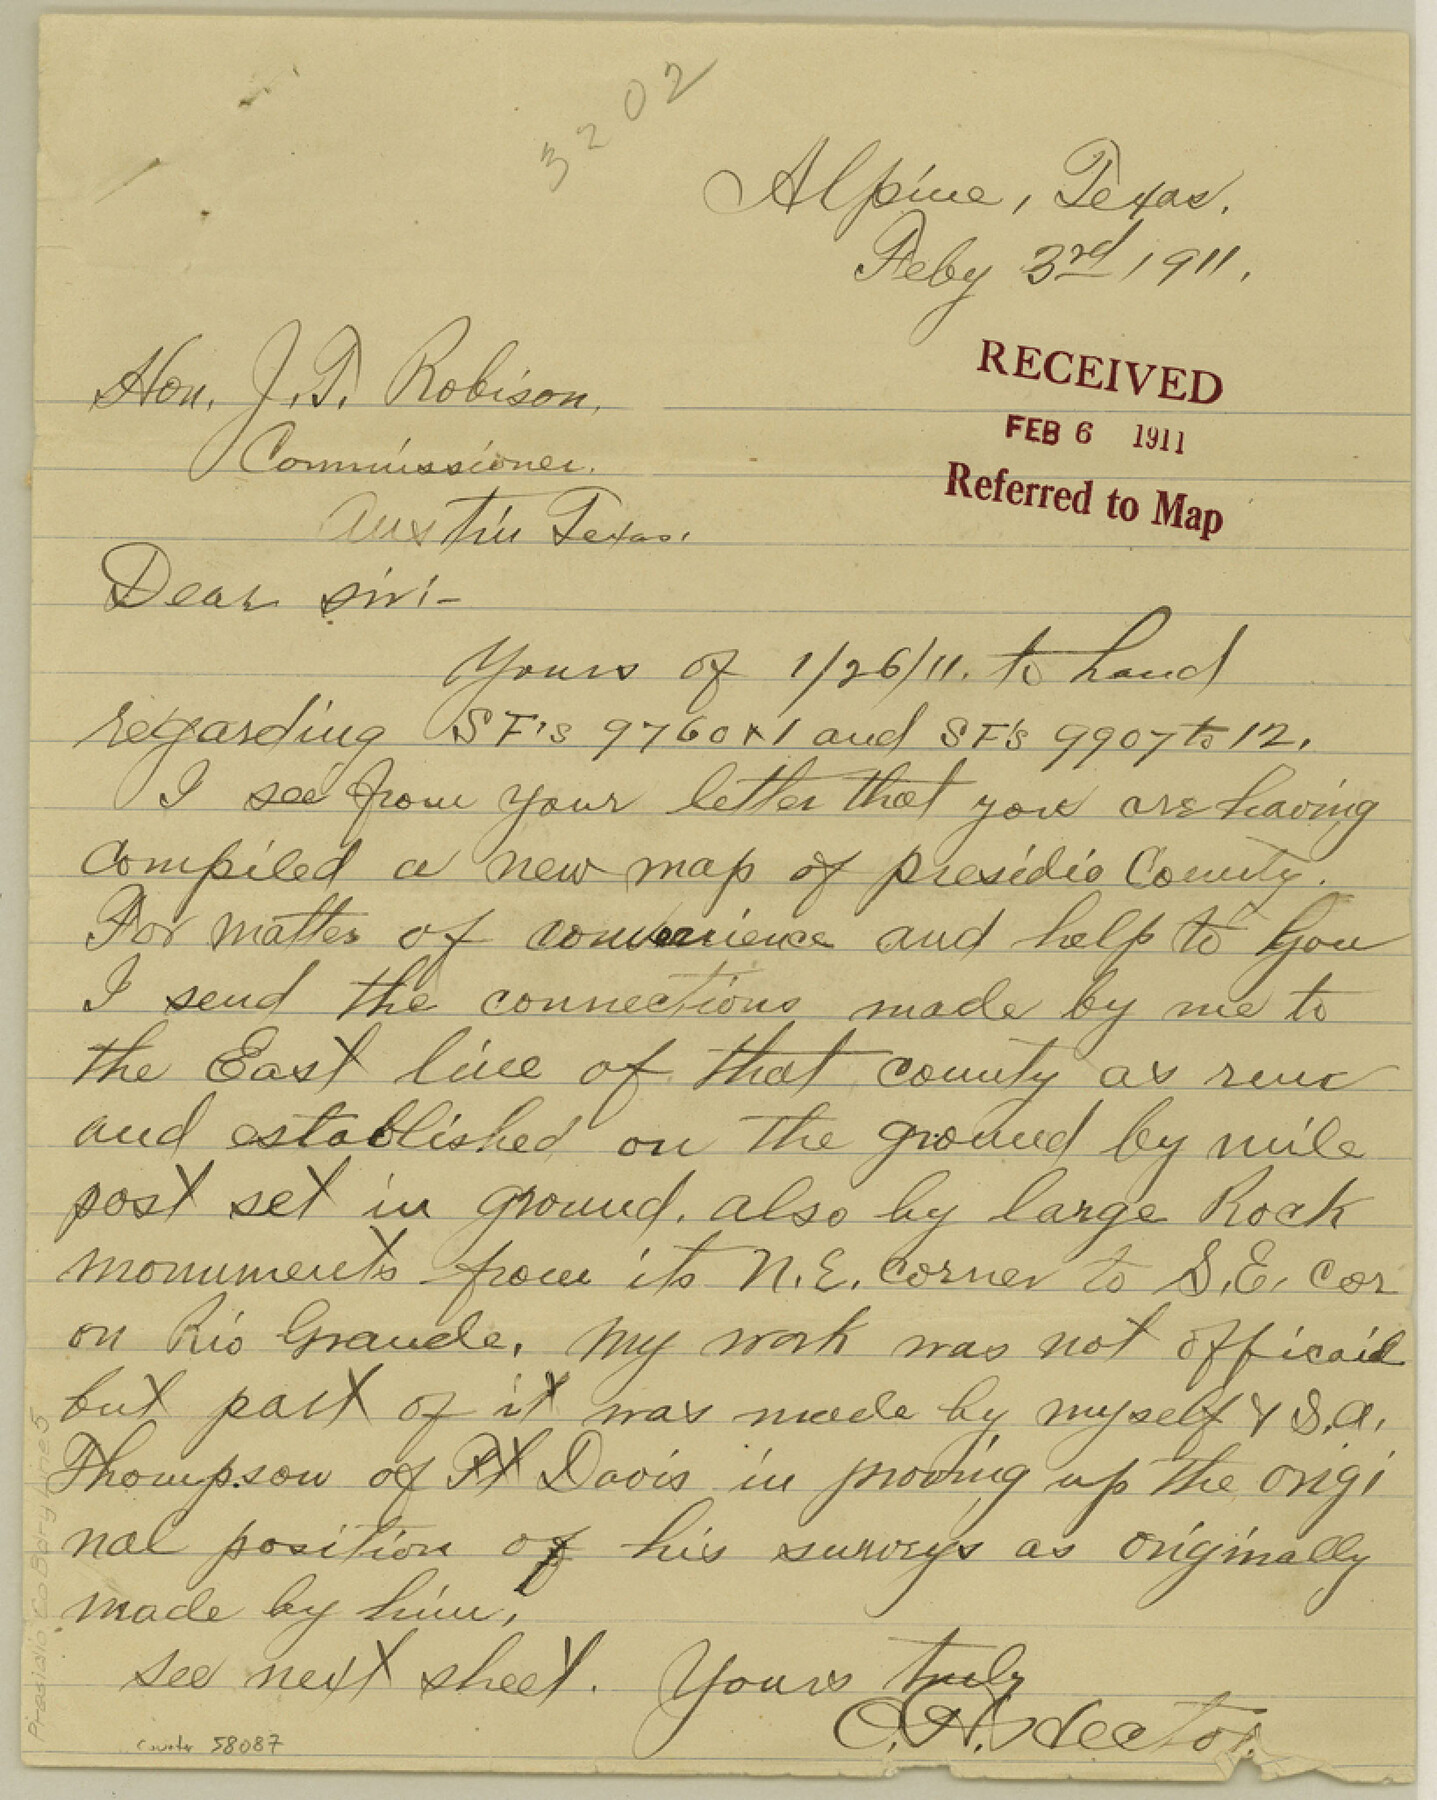 3202
Alpine, Texas.
Feby 3rd 1911.
RECEIVED
FEB 6 1911
Referred to Map
Hon. J. T. Robison,
Commissioner.
Austin Texas.
Dear sir:-
Yours of 1/26/11. to hand
regarding SF's 9760 & 1 and SF's 9907 to 12.
I see from your letter that you are having
compiled a new map of presidio County.
For matter of convenience and help to you
I send the connections made by me to
the East line of that county as run
and established on the ground by mile
post set in ground. also by large Rock
monuments from its N.E. corner to S.E. cor
on Rio Grande. My work was not officail
but part of it was made by myself & S.A.
Thompson of Ft Davis in proving up the origi
nal position of his surveys as originally
made by him.
see next sheet. Yours truly
Hector
Presidio Co Bdry Line 5
Counter 58087